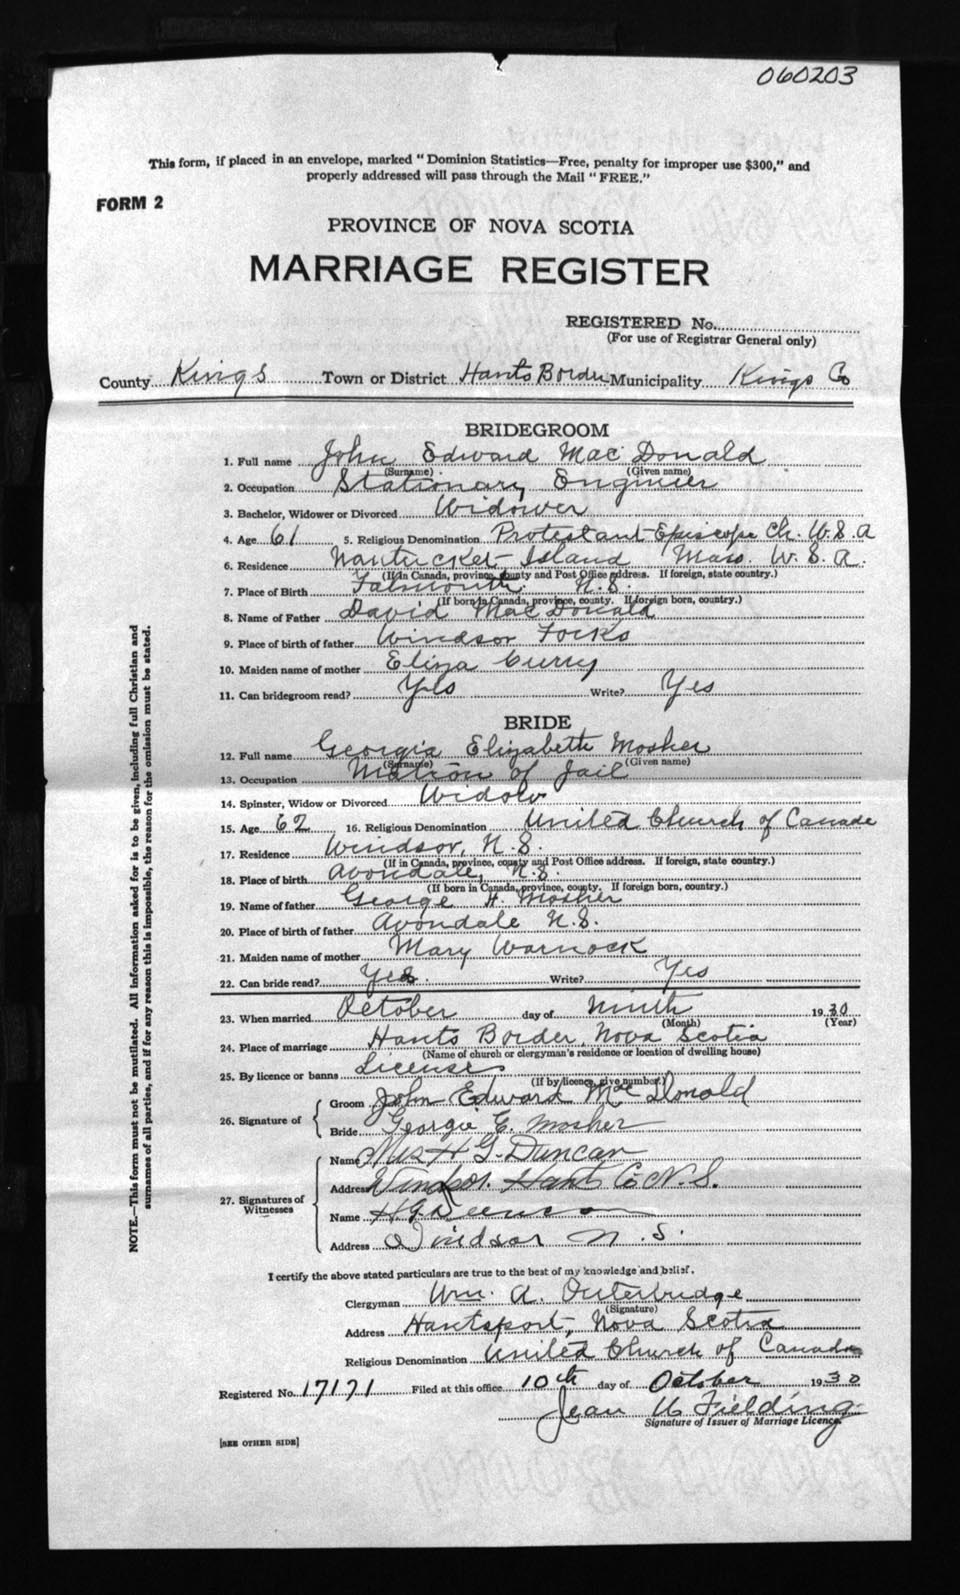 060203
This form, if placed in an envelope, marked "Dominion Statistics—Free, penalty for improper use $300," and
properly addressed will pass through the Mail "FREE."
FORM 2
PROVINCE OF NOVA SCOTIA
MARRIAGE REGISTER
REGISTERED No.
(For use of Registrar General only)
County Kings Town or District Hants Border Municipality Kings Co
BRIDEGROOM
1. Full name John Edward Mac Donald
(Surname) (Given name)
2. Occupation Stationary Engineer
3. Bachelor, Widower or Divorced Widower
4. Age 61 5. Religious Denomination Protestant Episcope Ch. U.S.A
6. Residence Nantucket Island Mass. U.S.A.
(If in Canada, province, county and Post Office address. If foreign, state country.)
7. Place of Birth Falmouth N.S.
(If born in Canada, province, county. If foreign born, country.)
8. Name of Father David MacDonald
9. Place of birth of father Windsor Forks
10. Maiden name of mother Eliza Curry
11. Can bridegroom read? Yes Write? Yes
BRIDE
12. Full name Georgia Elizabeth Mosher
(Surname) (Given name)
13. Occupation Matron of Jail
14. Spinster, Widow or Divorced Widow
15. Age 62 16. Religious Denomination United Church of Canada
17. Residence Windsor, N.S.
(If in Canada, province, county and Post Office address. If foreign, state country.)
18. Place of birth Avondale, N.S.
(If born in Canada, province, county. If foreign born, country.)
19. Name of father George H. Mosher
20. Place of birth of father Avondale N.S.
21. Maiden name of mother Mary Warnock
22. Can bride read? Yes. Write? Yes
23. When married October day of Ninth 1930
(Month) (Year)
24. Place of marriage Hants Border, Nova Scotia
(Name of church or clergyman's residence or location of dwelling house)
25. By licence or banns License
(If by licence, give number.)
26. Signature of
Groom John Edward Mac Donald
Bride Georgie E. Mosher
27. Signatures of Witnesses
Name Mrs H G. Duncan
Address Windsor. Hants Co N.S.
Name H.G. Duncan
Address Windsor N.S.
I certify the above stated particulars are true to the best of my knowledge and belief.
Clergyman Wm. A. Outerbridge
(Signature)
Address Hantsport, Nova Scotia
Religious Denomination United Church of Canada
Registered No. 17171 Filed at this office 10th day of October 1930
Jean U Fielding
Signature of Issuer of Marriage Licence.
[SEE OTHER SIDE]
NOTE.—This form must not be mutilated. All information asked for is to be given, including full Christian and
surnames of all parties, and if for any reason this is impossible, the reason for the omission must be stated.